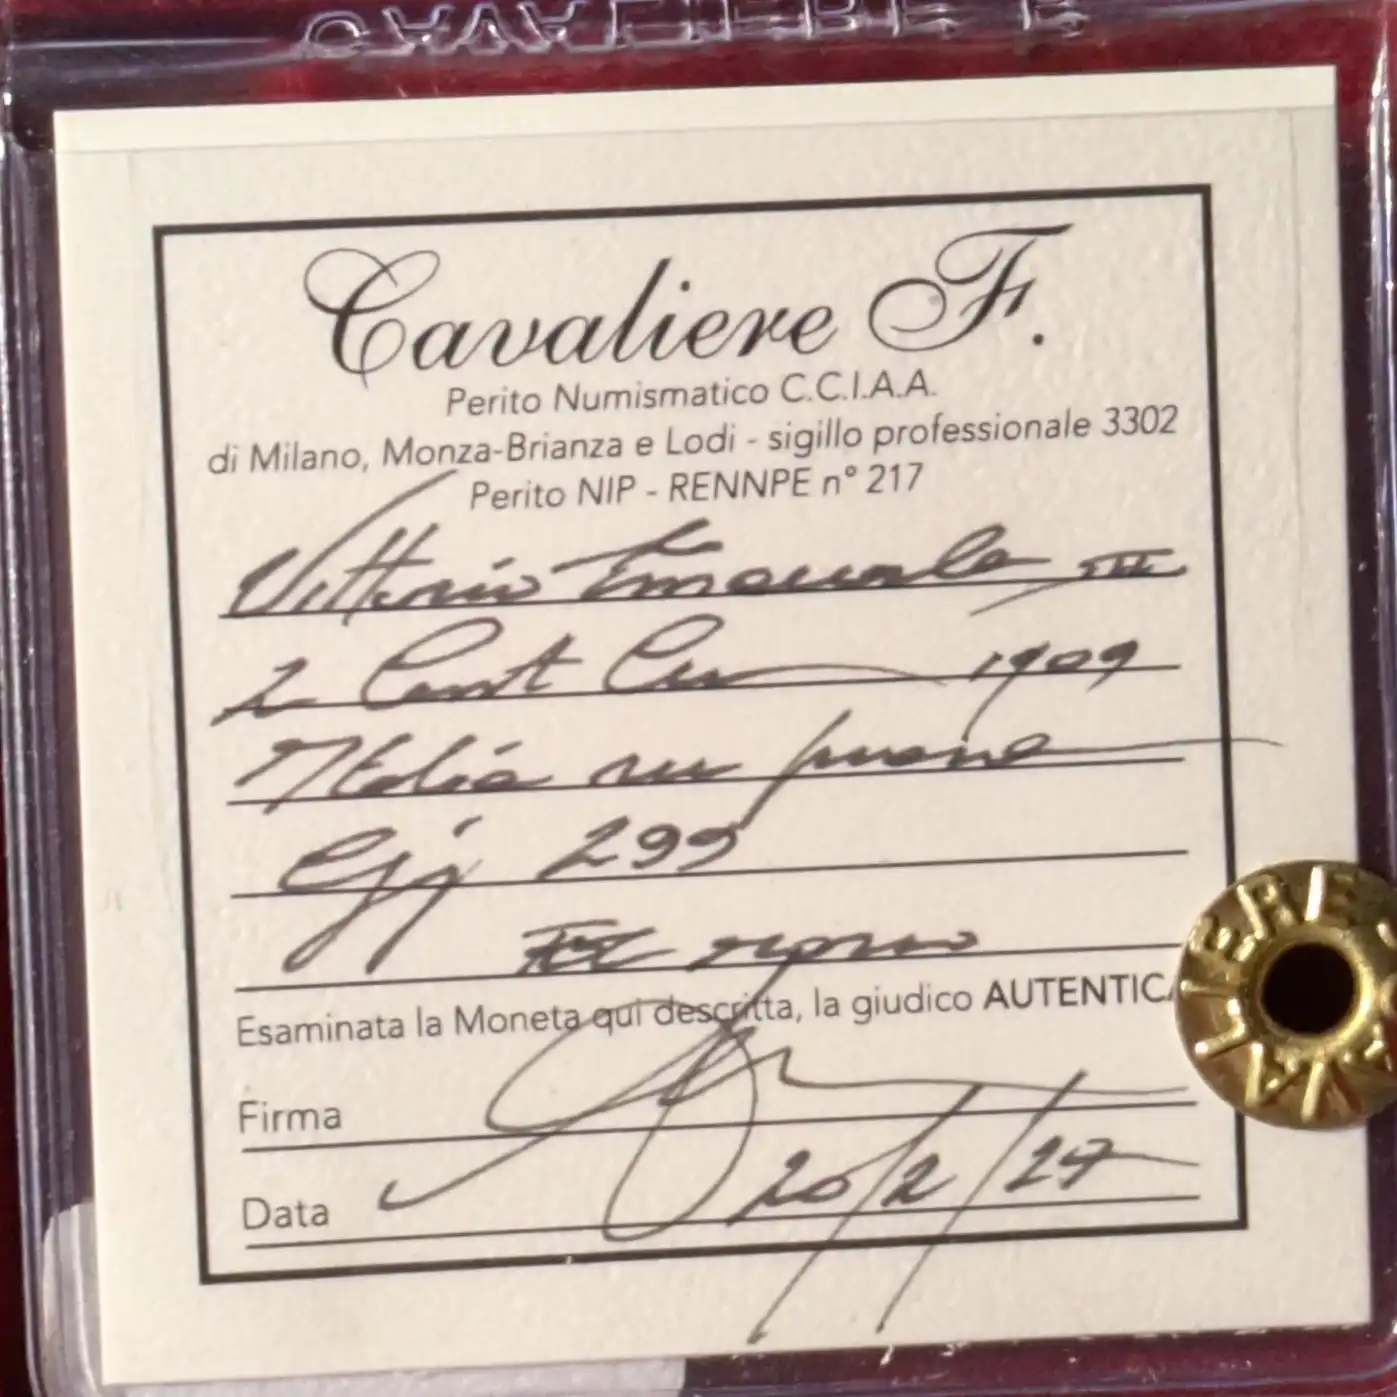 CAVALIERE F
Cavaliere F.
Perito Numismatico C.C.I.A.A.
di Milano, Monza-Brianza e Lodi - sigillo professionale 3302
Perito NIP - RENNPE n° 217
Vittorio Emanuele III
2 Cent 1909
Italia su prora
Gij 299
FDC rosso
Esaminata la Moneta qui descritta, la giudico AUTENTICA
Firma
Data 20/2/24
CAVALIERE